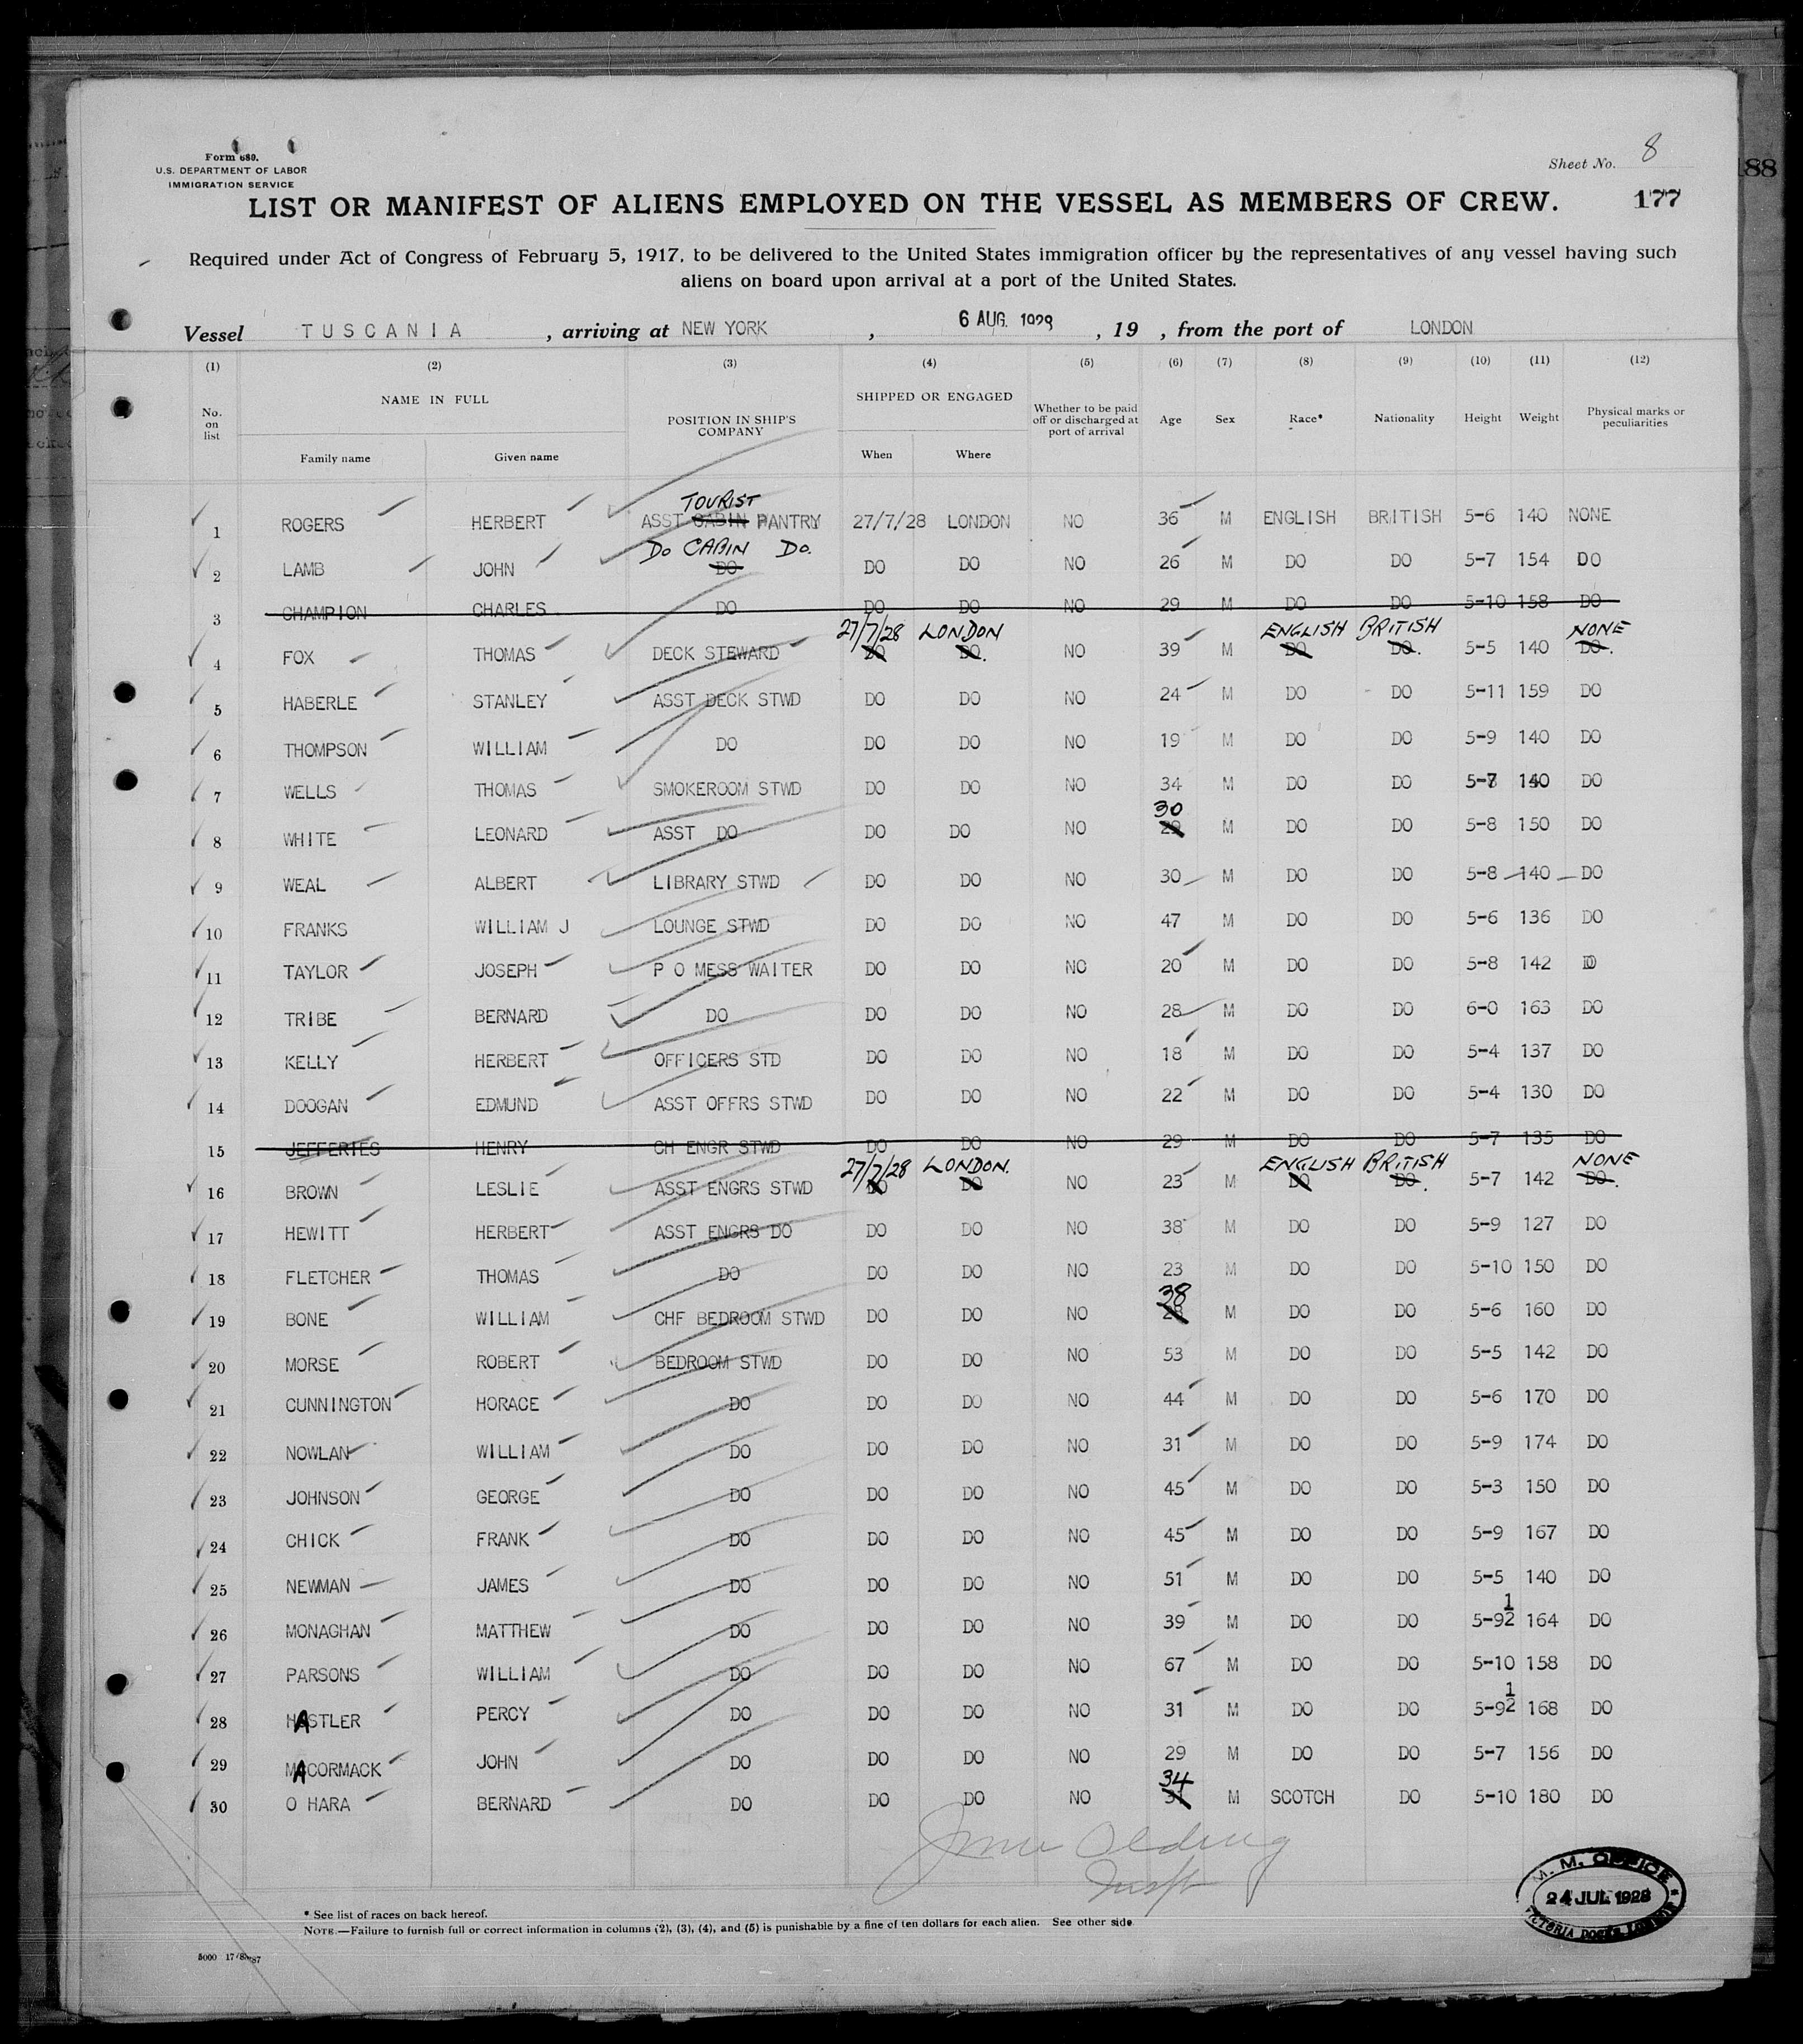 Form 680.
U.S. DEPARTMENT OF LABOR
IMMIGRATION SERVICE
Sheet No. 8
188
LIST OR MANIFEST OF ALIENS EMPLOYED ON THE VESSEL AS MEMBERS OF CREW.
177
Required under Act of Congress of February 5, 1917, to be delivered to the United States immigration officer by the representatives of any vessel having such
aliens on board upon arrival at a port of the United States.
Vessel TUSCANIA , arriving at NEW YORK , 6 AUG. 1928 , 19 , from the port of LONDON
(1) (2) (3) (4) (5) (6) (7) (8) (9) (10) (11) (12)
No. on list NAME IN FULL POSITION IN SHIP'S COMPANY SHIPPED OR ENGAGED Whether to be paid off or discharged at port of arrival Age Sex Race* Nationality Height Weight Physical marks or peculiarities
Family name Given name When Where
TOURIST
1 ROGERS HERBERT ASST CABIN PANTRY 27/7/28 LONDON NO 36 M ENGLISH BRITISH 5-6 140 NONE
Do CABIN Do.
2 LAMB JOHN DO DO DO NO 26 M DO DO 5-7 154 DO
3 CHAMPION CHARLES DO DO DO NO 29 M DO DO 5-10 158 DO
27/7/28 LONDON ENGLISH BRITISH NONE
4 FOX THOMAS DECK STEWARD DO DO. NO 39 M DO DO. 5-5 140 DO.
5 HABERLE STANLEY ASST DECK STWD DO DO NO 24 M DO DO 5-11 159 DO
6 THOMPSON WILLIAM DO DO DO NO 19 M DO DO 5-9 140 DO
7 WELLS THOMAS SMOKEROOM STWD DO DO NO 34 M DO DO 5-7 140 DO
30
8 WHITE LEONARD ASST DO DO DO NO 29 M DO DO 5-8 150 DO
9 WEAL ALBERT LIBRARY STWD DO DO NO 30 M DO DO 5-8 140 DO
10 FRANKS WILLIAM J LOUNGE STWD DO DO NO 47 M DO DO 5-6 136 DO
11 TAYLOR JOSEPH P O MESS WAITER DO DO NO 20 M DO DO 5-8 142 DO
12 TRIBE BERNARD DO DO DO NO 28 M DO DO 6-0 163 DO
13 KELLY HERBERT OFFICERS STD DO DO NO 18 M DO DO 5-4 137 DO
14 DOOGAN EDMUND ASST OFFRS STWD DO DO NO 22 M DO DO 5-4 130 DO
15 JEFFERIES HENRY CH ENGR STWD DO DO NO 29 M DO DO 5-7 135 DO
27/7/28 LONDON. ENGLISH BRITISH NONE
16 BROWN LESLIE ASST ENGRS STWD DO DO NO 23 M DO DO. 5-7 142 DO.
17 HEWITT HERBERT ASST ENGRS DO DO DO NO 38 M DO DO 5-9 127 DO
18 FLETCHER THOMAS DO DO DO NO 23 M DO DO 5-10 150 DO
38
19 BONE WILLIAM CHF BEDROOM STWD DO DO NO M DO DO 5-6 160 DO
20 MORSE ROBERT BEDROOM STWD DO DO NO 53 M DO DO 5-5 142 DO
21 CUNNINGTON HORACE DO DO DO NO 44 M DO DO 5-6 170 DO
22 NOWLAN WILLIAM DO DO DO NO 31 M DO DO 5-9 174 DO
23 JOHNSON GEORGE DO DO DO NO 45 M DO DO 5-3 150 DO
24 CHICK FRANK DO DO DO NO 45 M DO DO 5-9 167 DO
25 NEWMAN JAMES DO DO DO NO 51 M DO DO 5-5 140 DO
26 MONAGHAN MATTHEW DO DO DO NO 39 M DO DO 5-9½ 164 DO
27 PARSONS WILLIAM DO DO DO NO 67 M DO DO 5-10 158 DO
28 HASTLER PERCY DO DO DO NO 31 M DO DO 5-9½ 168 DO
29 MACORMACK JOHN DO DO DO NO 29 M DO DO 5-7 156 DO
34
30 O HARA BERNARD DO DO DO NO 31 M SCOTCH DO 5-10 180 DO
Inspt
M. M. OFFICE
24 JUL 1928
VICTORIA DOCKS LONDON
* See list of races on back hereof.
NOTE.—Failure to furnish full or correct information in columns (2), (3), (4), and (5) is punishable by a fine of ten dollars for each alien. See other side.